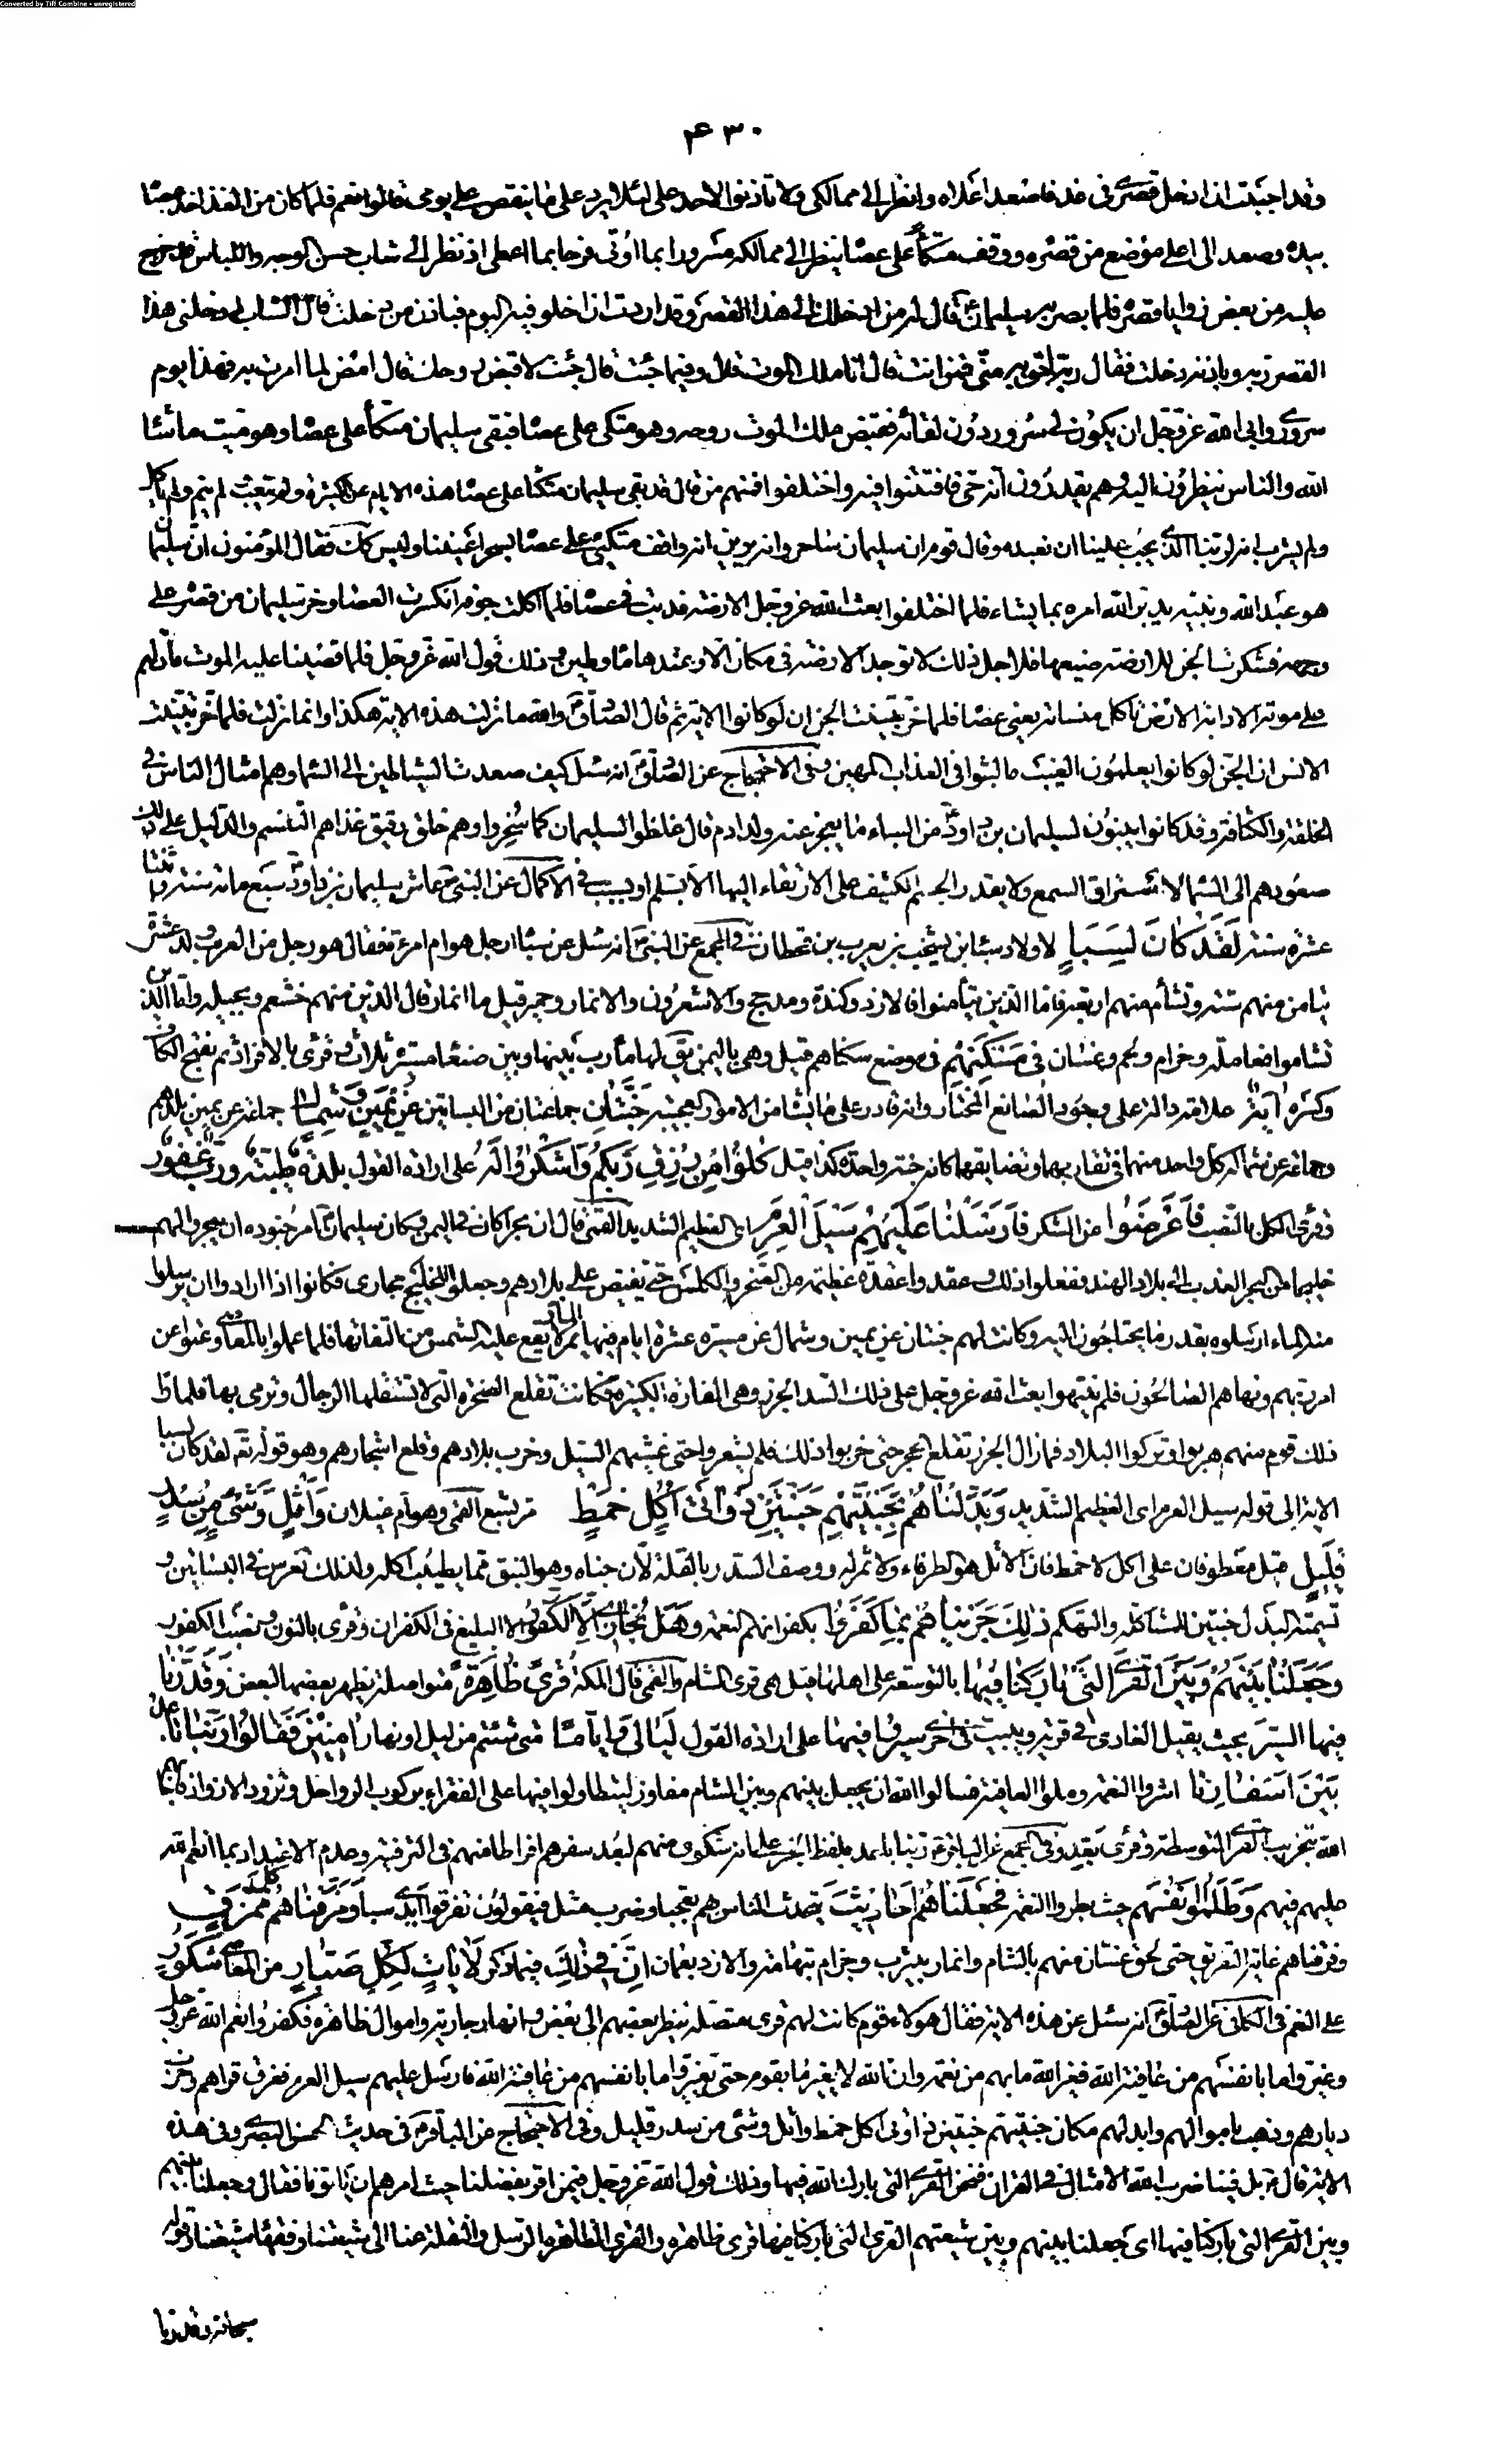 Converted by Tiff Combine - unregistered
۴۳۰
وقد احببت ان ادخل قصری فی غد فاصعد اعلاه وانظر الی ممالکی ولا تاذنوا لاحد علی لئلا یرد علی ما ینقص علی یومی فقالوا نعم فلما کان من الغد اخذ عصا
بیده وصعد الی اعلی موضع من قصره ووقف متکأ علی عصا ینظر الی ممالکه مسرورا بما اوتی فرحا بما اعطی اذ نظر الی شاب حسن الوجه واللباس قد خرج
علیه من بعض زوایا قصره فلما بصر به سلیمان ع قال له من ادخلک الی هذا القصر وقد اردت ان اخلو فیه الیوم فباذن من دخلت قال الشاب ادخلنی هذا
القصر ربه وباذنه دخلت فقال ربه احق به منی فمن انت قال انا ملک الموت قال وفیما جئت قال جئت لاقبض روحک قال امض لما امرت به فهذا یوم
سروری وابی الله عز وجل ان یکون لی سرور دون لقائه فقبض ملک الموت روحه وهو متکی علی عصا فبقی سلیمان متکأ علی عصا وهو میت ما شا
الله والناس ینظرون الیه وهم یقدرون انه حی فافتتنوا فیه واختلفوا فمنهم من قال قد بقی سلیمان متکئا علی عصا هذه الایام الکثیرة ولم یتعب ولم ینم ولم یاکل
ولم یشرب انه لربنا الذی یجب علینا ان نعبده وقال قوم ان سلیمان ساحر وانه یرینا انه واقف متکئ علی عصا یسحر اعیننا ولیس کذلک فقال المؤمنون ان سلیمان
هو عبد الله ونبیه یدبر الله امره بما یشاء فلما اختلفوا بعث الله عز وجل الارضة فدبت فی عصا فلما اکلت جوفها انکسرت العصا وخر سلیمان من قصره علی
وجهه فشکرت الجن للارضة صنیعها فلاجل ذلک لا توجد الارضة فی مکان الا وعندها ماء وطین وذلک قول الله عز وجل فلما قضینا علیه الموت ما دلهم
علی موته الا دابة الارض تاکل منساته یعنی عصا فلما خر تبینت الجن ان لو کانوا الایة ثم قال الصادق ع والله ما نزلت هذه الایة هکذا وانما نزلت فلما خر تبینت
الانس ان الجن لو کانوا یعلمون الغیب ما لبثوا فی العذاب المهین وفی الاحتجاج عن الصادق ع انه سئل کیف صعدت الشیاطین الی السماء وهم امثال الناس فی
الخلقة والکثافة وقد کانوا یبنون لسلیمان بن داود من البناء ما یعجز عنه ولد ادم قال غلظوا لسلیمان کما سخروا وهم خلق رقیق غذاهم التنسم والدلیل علی ذلک
صعودهم الی السماء لاستراق السمع ولا یقدر الجسم الکثیف علی الارتقاء الیها الا بسلم او بسبب فی الاکمال عن النبی ص عاش سلیمان بن داود سبع مائة سنة واثنتا
عشرة سنة لَقَدْ کانَ لِسَبَإٍ لاولاد سبا بن یشجب بن یعرب بن قحطان فی المجمع عن النبی ص انه سئل عن سبا ارجل هو ام امرءة فقال هو رجل من العرب ولد عشرة
تیامن منهم ستة وتشأم منهم اربعة فاما الذین تیامنوا فالازد وکندة ومذحج والاشعرون والانمار وحمیر قیل ما انمار قال الذین منهم خثعم وبجیله واما الذین
تشاموا فعاملة وجزام ولخم وغسان فی مَسْکَنِهِمْ فی موضع سکناهم قیل وهی بالیمن یق لها مأرب بینها وبین صنعا مسیرة ثلاث وقرئ بالافراد ثم بفتح الکاف
وکسره آیَةٌ علامة دالة علی وجود الصانع المختار وانه قادر علی ما یشا من الامور العجیبة جَنَّتانِ جماعتان من البساتین عَنْ یَمینٍ وَشِمالٍ جماعة عن یمین بلدهم
وجماعة عن شماله کل واحد منهما فی تقاربهما وتضایقهما کانه جنة واحدة کذا قیل کُلُوا مِنْ رِزْقِ رَبِّکُمْ وَاشْکُرُوا لَهُ علی ارادة القول بَلْدَةٌ طَیِّبَةٌ وَرَبٌّ غَفُورٌ
وقرئ الکل بالنصب فَأَعْرَضُوا عن الشکر فَأَرْسَلْنا عَلَیْهِمْ سَیْلَ الْعَرِمِ ای العظیم الشدید القمی قال ان بحرا کان فی الیمن وکان سلیمان ع امر جنوده ان یجروا لهم
خلیجا من البحر العذب الی بلاد الهند ففعلوا ذلک وعقدوا عقدة عظیمة من الصخر والکلس حتی یفیض علی بلادهم وجعلوا للخلیج مجاری فکانوا اذا ارادوا ان یرسلوا
منه الماء ارسلوه بقدر ما یحتاجون الیه وکانت لهم جنتان عن یمین وشمال عن مسیرة عشرة ایام فیها یمر المار لا یقع علیه الشمس من التفافها فلما عملوا بالمعاصی وعتوا عن
امر ربهم ونهاهم الصالحون فلم ینتهوا بعث الله عز وجل علی ذلک السد الجرذ وهی الفارة الکبیرة فکانت تقلع الصخرة التی لا تستقلها الرجال وترمی بها فلما رای
ذلک قوم منهم هربوا وترکوا البلاد فما زال الجرذ تقلع الحجر حتی خربوا ذلک فلم یشعروا حتی غشیهم السیل وخرب بلادهم وقلع اشجارهم وهو قوله تعه لقد کان لسبا
الایة الی قوله سیل العرم ای العظیم الشدید وَبَدَّلْناهُمْ بِجَنَّتَیْهِمْ جَنَّتَیْنِ ذَواتَیْ أُکُلٍ خَمْطٍ مر بشع القمی وهو ام غیلان وَأَثْلٍ وَشَیْءٍ مِنْ سِدْرٍ
قَلِیلٍ قیل معطوفان علی اکل لا خمط فان الاثل هو الطرفاء ولا ثمر له ووصف السدر بالقلة لان جناه وهو النبق مما یطیب اکله ولذلک تغرس فی البساتین و
تسمیة البدل جنتین للمشاکلة والتهکم ذلِکَ جَزَیْناهُمْ بِما کَفَرُوا بکفرانهم النعمة وَهَلْ نُجازی إِلَّا الْکَفُورَ الا البلیغ فی الکفران وقرئ بالنون ونصب الکفور
وَجَعَلْنا بَیْنَهُمْ وَبَیْنَ الْقُرَی الَّتی بارَکْنا فِیها بالتوسعة علی اهلها قیل هی قری الشام والقمی قال المکة قُرًی ظاهِرَةً متواصلة یظهر بعضها لبعض وَقَدَّرْنا
فِیهَا السَّیْرَ بحیث یقیل الغادی فی قریة ویبیت فی اخری سِیرُوا فِیها علی ارادة القول لَیالِیَ وَأَیَّاماً متی شئتم من لیل او نهار آمِنِینَ فَقالُوا رَبَّنا باعِدْ
بَیْنَ أَسْفارِنا اشروا النعمة وملوا العافیة فسالوا الله ان یجعل بینهم وبین الشام مفاوز لیتطاولوا فیها علی الفقراء برکوب الرواحل وتزود الازواد فاجابهم
الله بتخریب القری المتوسطة وقرئ بَعِّد وفی المجمع عن الباقر ع ربنا باعد بلفظ الخبر علی انه شکوی منهم لبعد سفرهم افراطا منهم فی الترفیه وعدم الاعتداد بما انعم الله
علیهم فیهم وَظَلَمُوا أَنْفُسَهُمْ حیث بطروا النعمة فَجَعَلْناهُمْ أَحادِیثَ یتحدث الناس بهم تعجبا وضرب مثل فیقولون تفرقوا ایدی سبا وَمَزَّقْناهُمْ کُلَّ مُمَزَّقٍ
وفرقناهم غایة التفریق حتی لحق غسان منهم بالشام وانمار بیثرب وجزام بتهامة والازد بعمان إِنَّ فی ذلِکَ فیما ذکر لَآیاتٍ لِکُلِّ صَبَّارٍ من المعاصی شَکُورٍ
علی النعم فی الکافی عن الصادق ع انه سئل عن هذه الایة فقال هؤلاء قوم کانت لهم قری متصلة ینظر بعضهم الی بعض وانهار جاریة واموال ظاهرة فکفروا نعم الله عز وجل
وغیروا ما بانفسهم من عافیة الله فغیر الله ما بهم من نعمة وان الله لا یغیر ما بقوم حتی یغیروا ما بانفسهم من عافیة الله فارسل علیهم سیل العرم فغرق قراهم وخرب
دیارهم وذهب باموالهم وابدلهم مکان جنتیهم جنتین ذواتی اکل خمط واثل وشئ من سدر قلیل وفی الاحتجاج عن الباقر ع فی حدیث الحسن البصری فی هذه
الایة قال ع بل فینا ضرب الله الامثال فی القران فنحن القری التی بارک الله فیها وذلک قول الله عز وجل فیمن اقر بفضلنا حیث امرهم ان یاتونا فقال وجعلنا بینهم
وبین القری التی بارکنا فیها ای جعلنا بینهم وبین شیعتهم القری التی بارکنا فیها قری ظاهرة والقری الظاهرة الرسل والنقلة عنا الی شیعتنا وفقهاء شیعتنا وقوله
سبحانه وقدرنا